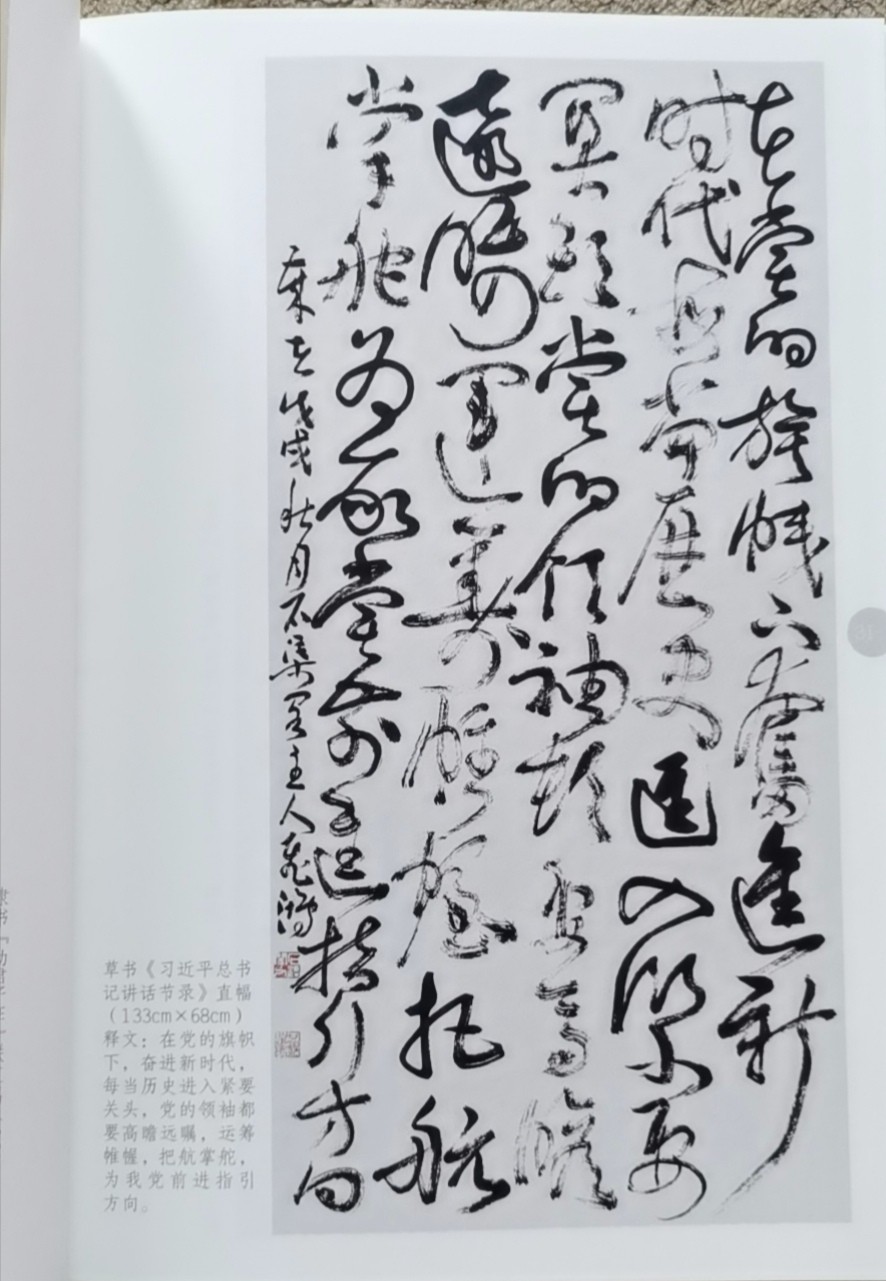 在党的旗帜下奮進新
时代每当历史进入紧要
关头党的领袖都要高瞻
遠瞩运筹帷幄把航
掌舵为我党前进指引方向
戊戌秋月主人
31
草书《习近平总书
记讲话节录》直幅
（133cm×68cm）
释文：在党的旗帜
下，奋进新时代，
每当历史进入紧要
关头，党的领袖都
要高瞻远瞩，运筹
帷幄，把航掌舵，
为我党前进指引
方向。